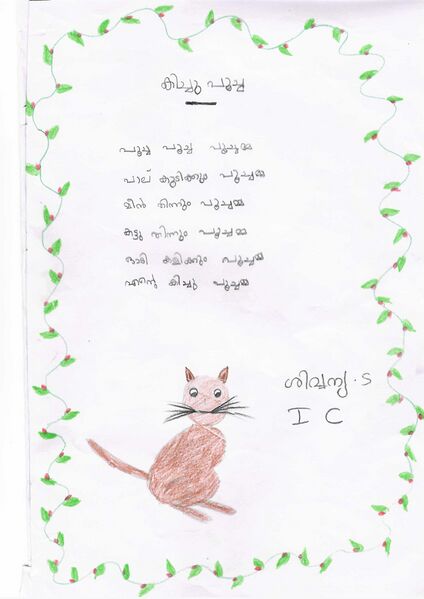 കിച്ചു പൂച്ച
പൂച്ച പൂച്ച പൂച്ചമ്മ
പാല് കുടിക്കും പൂച്ചമ്മ
മീൻ തിന്നും പൂച്ചമ്മ
കട്ടു തിന്നും പൂച്ചമ്മ
ഓടി കളിക്കും പൂച്ചമ്മ
എന്റെ കിച്ചു പൂച്ചമ്മ
ശിവന്യ . S
I C